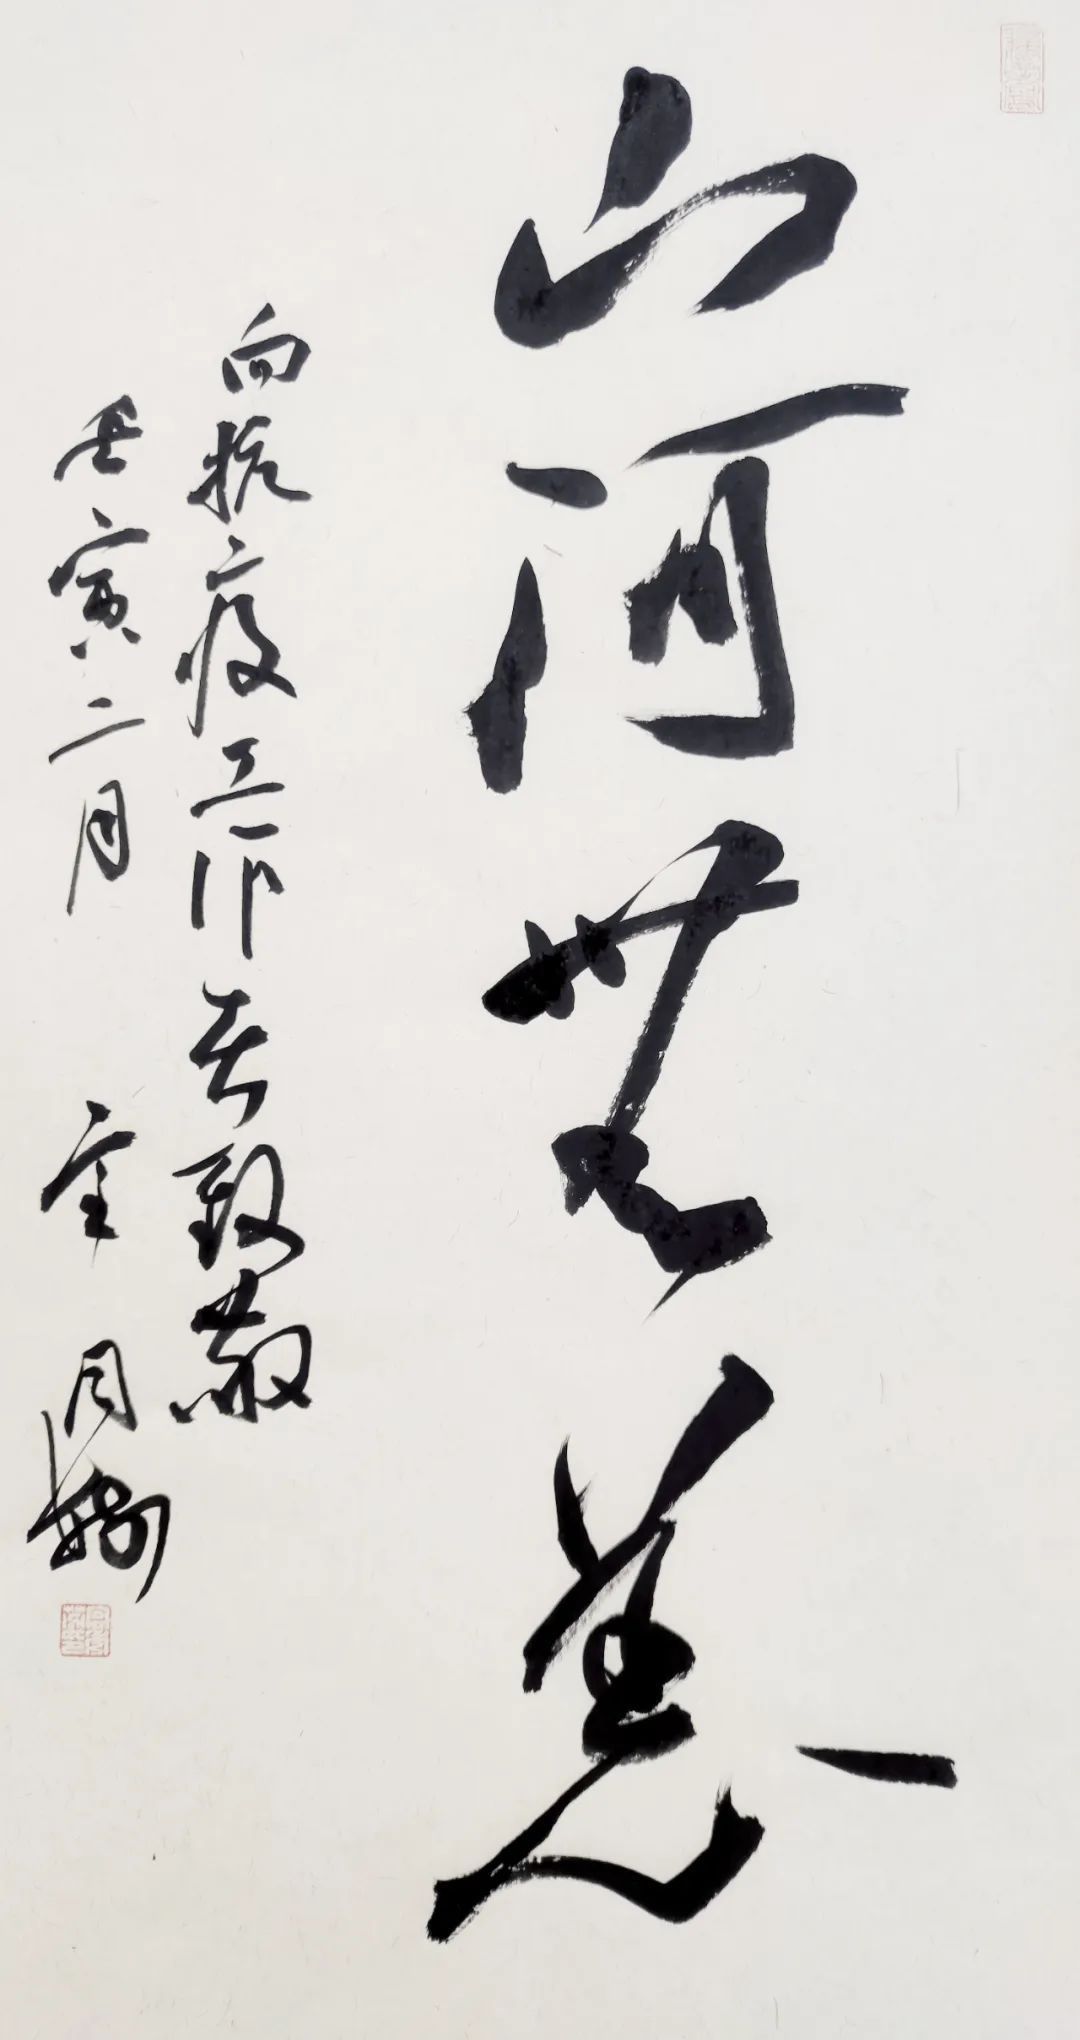 山河無恙
向抗疫工作者致敬
壬寅二月